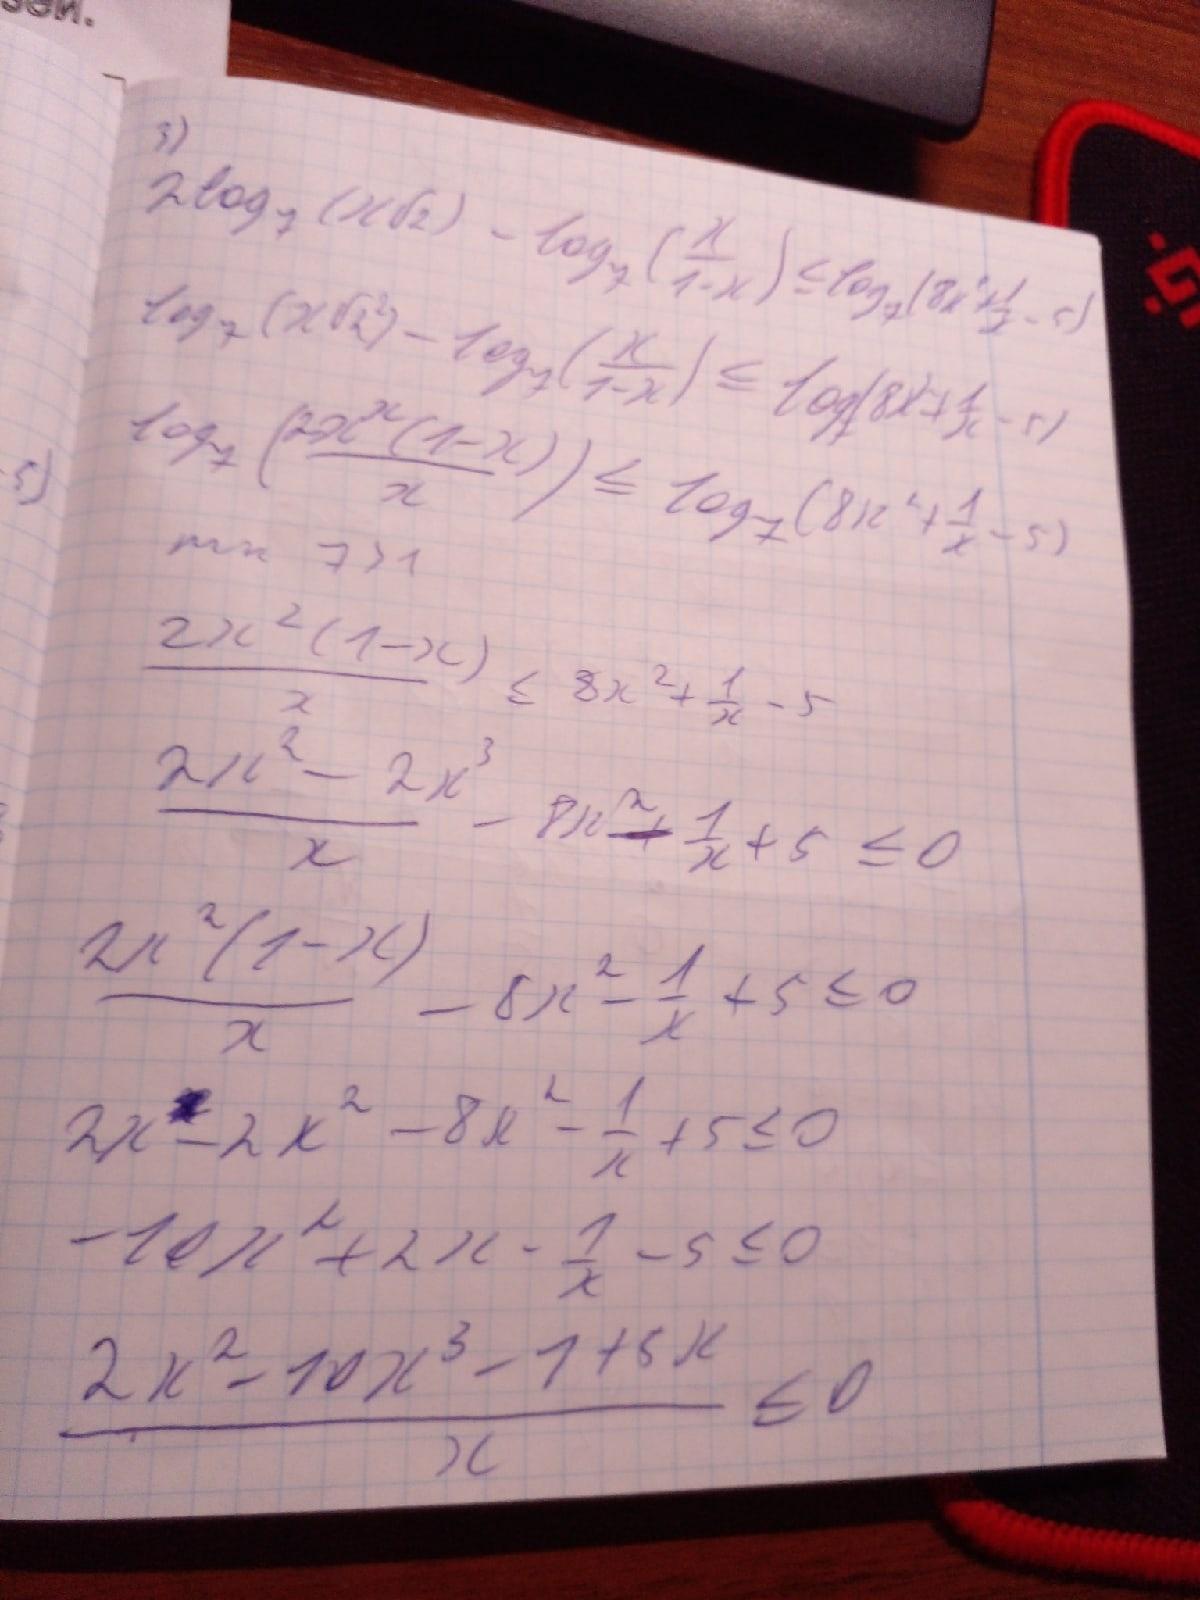 зей.
3)
2log₇(x√2) - log₇(x/(1-x)) ≤ log₇(8x²+1/x-5)
log₇(x√2²) - log₇(x/(1-x)) ≤ log₇(8x²+1/x-5)
log₇(2x²(1-x)/x) ≤ log₇(8x²+1/x-5)
7>1
2x²(1-x)/x ≤ 8x²+1/x-5
(2x²-2x³)/x - 8x² - 1/x + 5 ≤ 0
2x²(1-x)/x - 8x² - 1/x + 5 ≤ 0
2x - 2x² - 8x² - 1/x + 5 ≤ 0
-10x² + 2x - 1/x - 5 ≤ 0
(2x² - 10x³ - 1 + 5x)/x ≤ 0
-5)